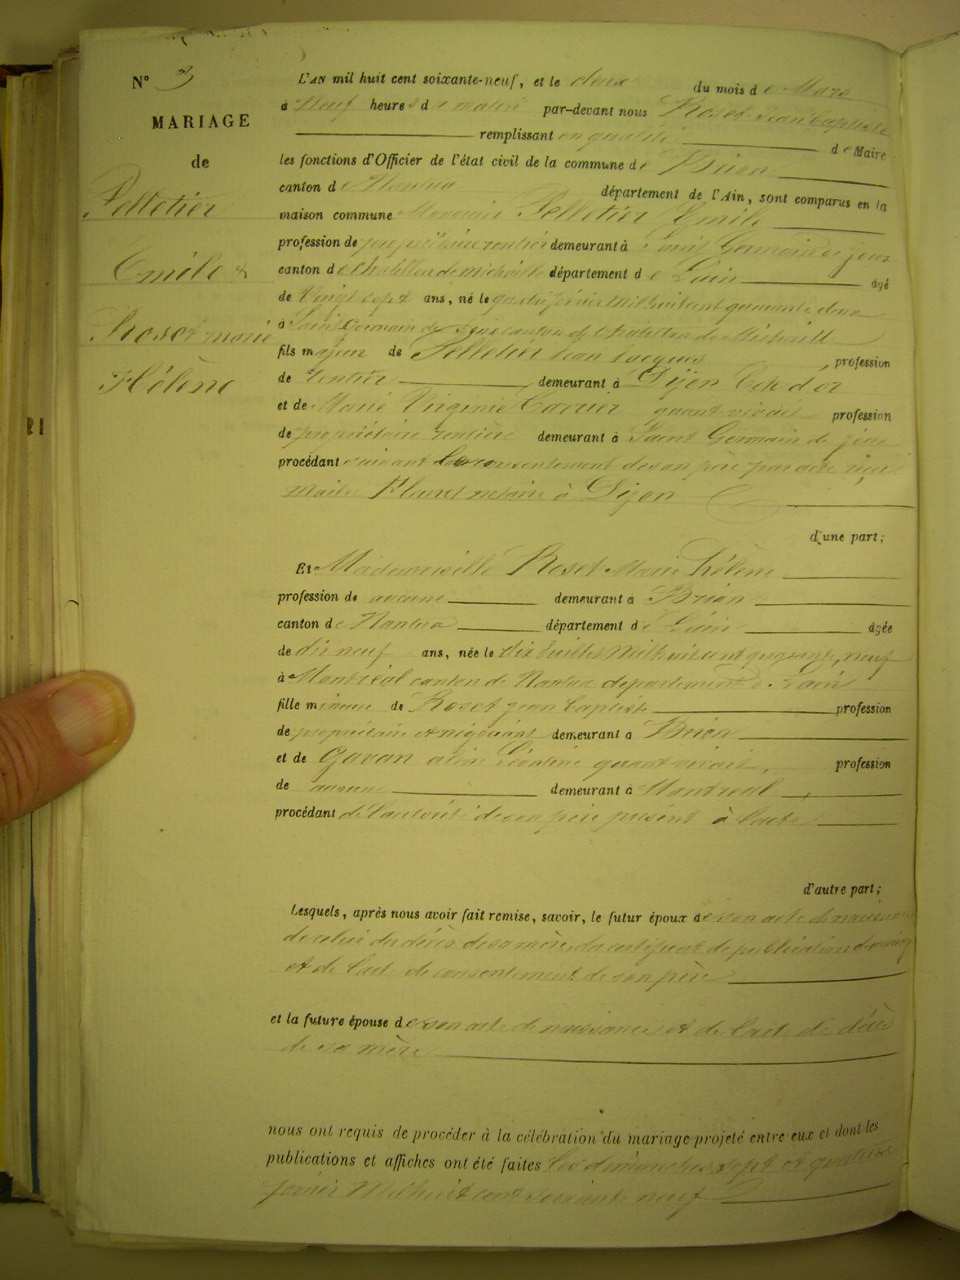 N° 3
MARIAGE
de
Pelletier
Emile &
Roset marie
Hélène
L'AN mil huit cent soixante-neuf, et le deux du mois de Mars
à Neuf heures du matin par-devant nous Roset Jean baptiste
remplissant en qualité de Maire
les fonctions d'Officier de l'état civil de la commune de Brion
canton de Nantua département de l'Ain, sont comparus en la
maison commune Monsieur Pelletier Emile
profession de propriétaire rentier demeurant à Saint Germain de joux
canton de Chatillon de Michaille département de L'ain âgé
de Vingt sept ans, né le quatre février Mil huit cent quarante deux
à Saint Germain de Joux canton de Chatillon de Michaille
fils majeur de Pelletier Jean Jacques profession
de rentier demeurant à Dijon Côte d'or
et de Marie Virginie quant vivait profession
de propriétaire rentière demeurant à Saint Germain de joux
procédant suivant le consentement de son père par acte reçu
Maitre notaire à Dijon
d'une part;
Et Mademoiselle Roset Marie Hélène
profession de aucune demeurant à Brion
canton de Nantua département de L'ain âgée
de dix neuf ans, née le dix Mil huit cent quarante neuf
à Montréal canton de Nantua département de L'ain
fille mineure de Roset jean baptiste profession
de propriétaire et négociant demeurant à Brion
et de Gavan quant vivait, profession
de aucune demeurant à Montréal
procédant de l'autorité de son père présent à l'acte
d'autre part;
Lesquels, après nous avoir fait remise, savoir, le futur époux de son acte de naissance
de celui du décès de sa mère, du certificat de publication de
et de l'acte de consentement de son père
et la future épouse de son acte de naissance et de l'acte de décès
de sa mère
nous ont requis de procéder à la célébration du mariage projeté entre eux et dont les
publications et affiches ont été faites les dimanches sept et quatorze
Mil huit cent soixante neuf